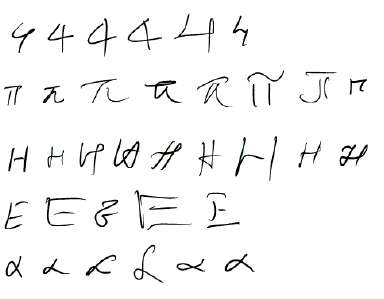 4 4 4 4 4 4
π π π π π π π π
H H H H H H H H H
E E E E E
α α α α α α